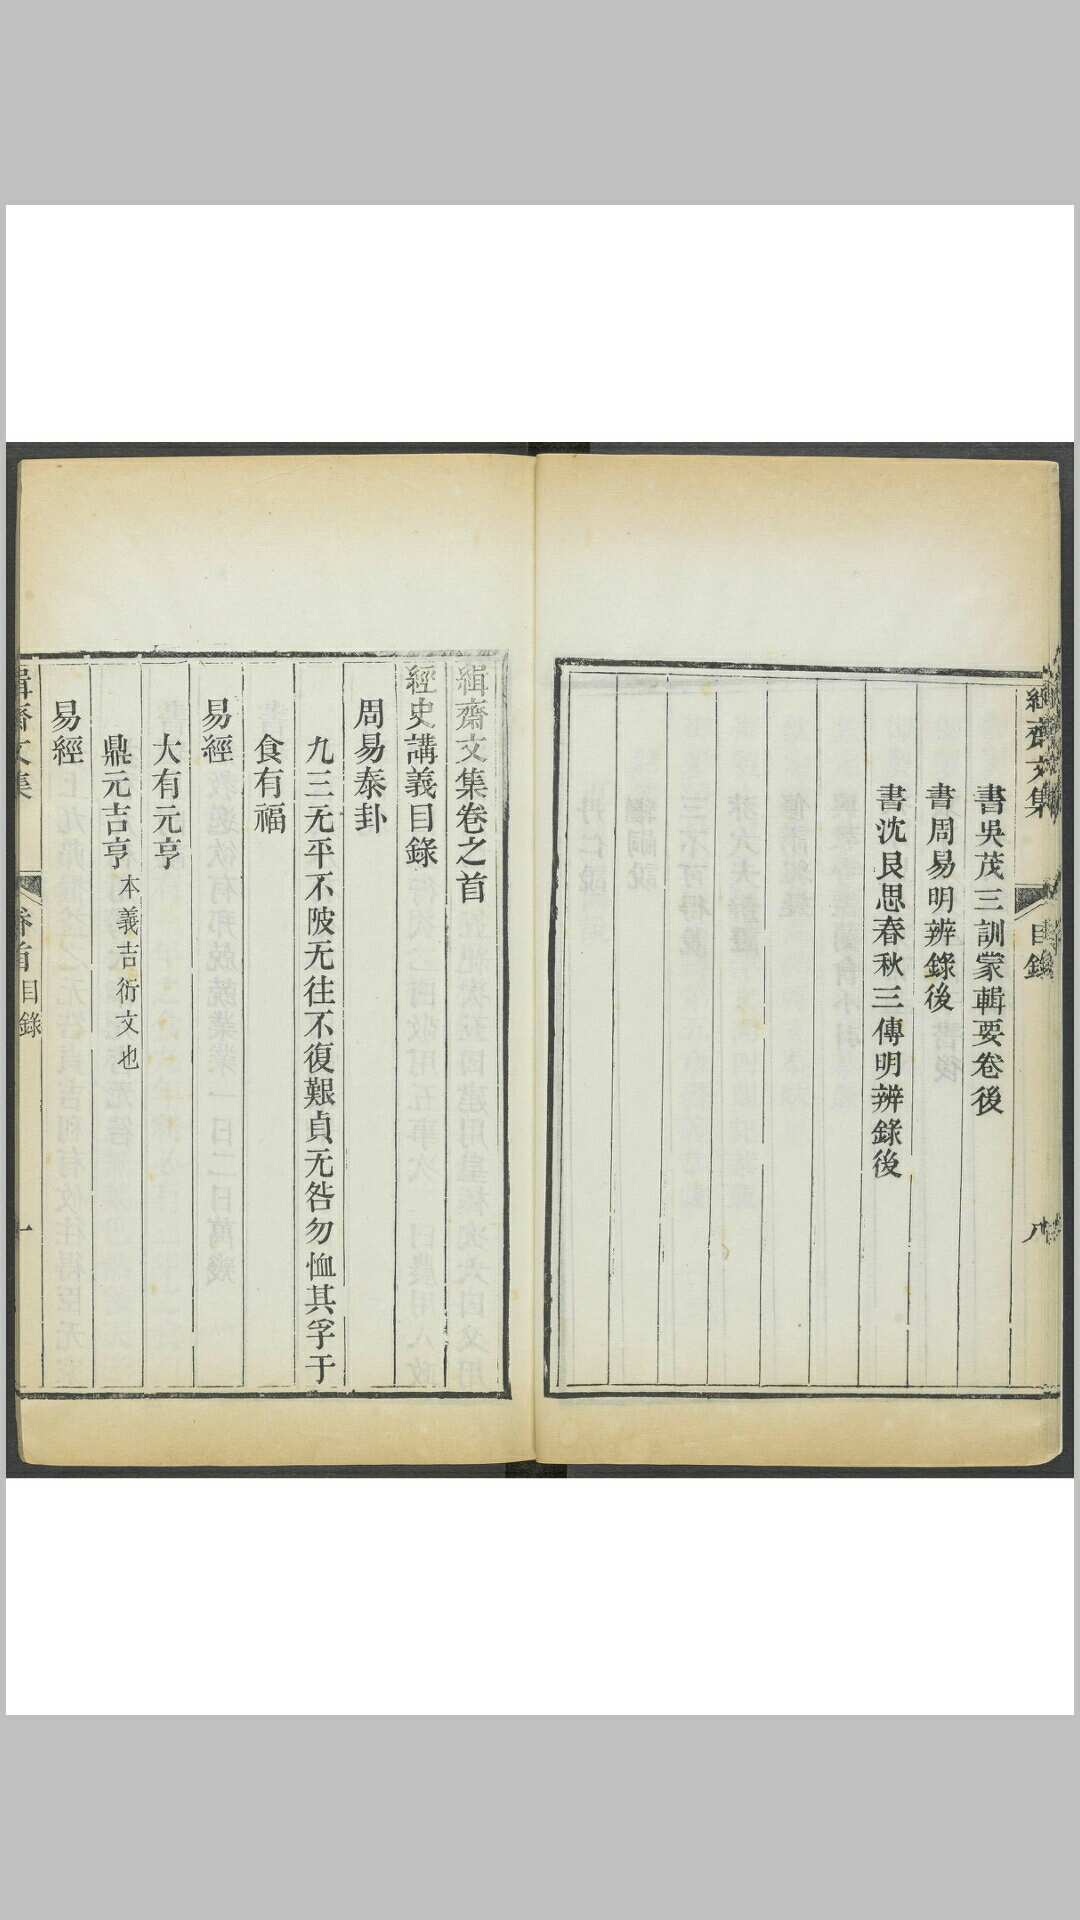 緝齋文集
目錄
八
書吳茂三訓蒙輯要卷後
書周易明辨錄後
書沈艮思春秋三傳明辨錄後
緝齋文集卷之首
經史講義目錄
周易泰卦
九三无平不陂无往不復艱貞无咎勿恤其孚于
食有福
易經
大有元亨
鼎元吉亨本義吉衍文也
易經
緝齋文集
卷首目錄
一